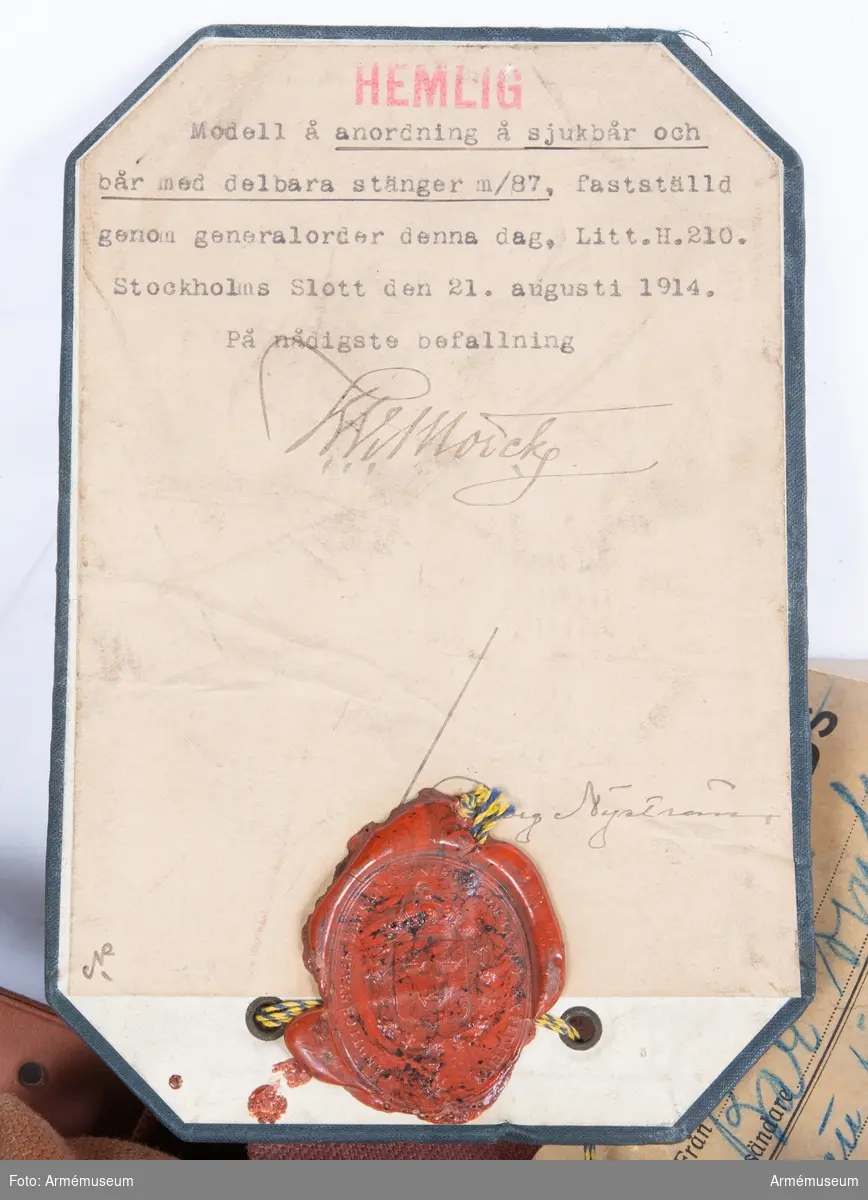 HEMLIG
Modell å anordning å sjukbår och
bår med delbara stänger m/87, fastställd
genom generalorder denna dag, Litt.H.210.
Stockholms Slott den 21. augusti 1914.
På nådigste befallning
Nyström
Från
sändare
Foto: Armémuseum
Armémuseum